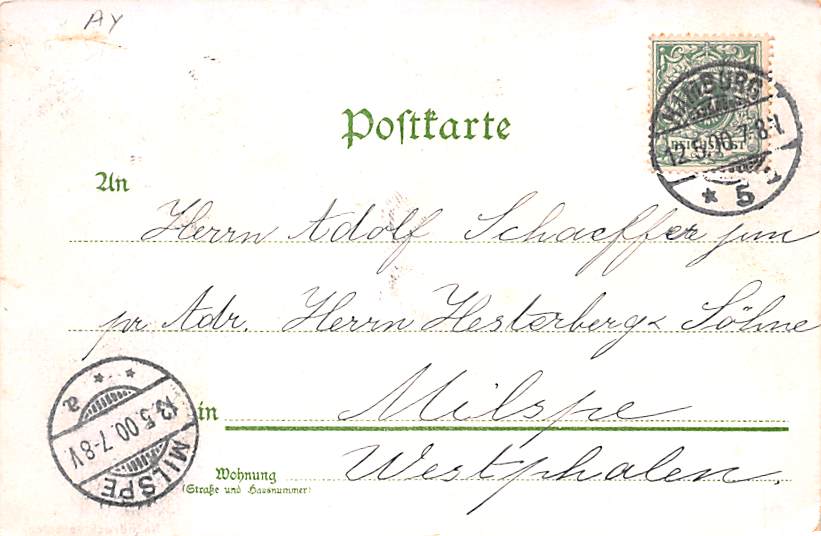 AY
Postkarte
HAMBURG
12.5.00.7-8V.
* 5 a
REICHSPOST
An
Herrn Adolf Schaeffer jun
pr Adr. Herrn Hesterberg & Söhne
in Milspe
Wohnung
(Straße und Hausnummer)
Westphalen.
* * a
13.5.00.7-8V.
MILSPE